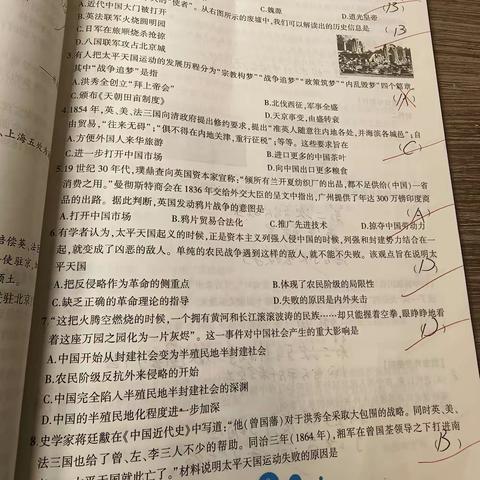 A.近代中国大门被打开
C.魏源
D.道光皇帝
"使者"。从右图所示的废墟中,我们可以解读出的历史信息是
B
B.英法联军火烧圆明园
C.日军在旅顺烧杀抢掠
D.八国联军攻占北京城
3.有人把太平天国运动的发展历程分为"宗教构梦""战争追梦""政策筑梦""内乱败梦"四个篇章,
其中"战争追梦"是指
A
A.洪秀全创立"拜上帝会"
B.北伐西征,军事全盛
C.颁布《天朝田亩制度》
D.天京事变,由盛转衰
4.1854年,英、美、法三国向清政府提出修约要求,提出"准英人随意往内地各处,并海滨各城邑";自
由贸易,"往来无碍";"俱不得在内地关津,重行征税";等等。这些要求旨在
C
A.方便外国人来华旅游
B.进口更多的中国茶叶
C.进一步打开中国市场
D.向中国出口更多粮食
5.19世纪30年代,璞鼎查向英国资本家宣称:"倾所有兰开夏纺织厂的出品,都不足供给(中国)一省
消费之用。"曼彻斯特商会在1836年交给外交大臣的呈文中指出,广州提供了年达300万镑印度商
品的出路。据此判断,英国发动鸦片战争的意图是
A
A.打开中国市场
B.鸦片贸易合法化
C.推广先进技术
D.掠夺中国劳动力
6.有学者认为,太平天国起义的时候,正是资本主义列强入侵中国的时候,列强和封建势力结合在一
起,就变成了凶恶的敌人。单纯的农民战争遇到这样的敌人,就不能不失败。该观点旨在说明太
平天国
D
A.把反侵略作为革命的侧重点
B.体现了农民阶级的局限性
C.缺乏正确的革命理论的指导
D.失败的原因是内外夹击
7."这把火腾空燃烧的时候,一个拥有黄河和长江滚滚波涛的民族……却只能握着空拳,眼睁睁地看
着这座万园之园化为一片灰烬"。这一事件对中国社会产生的重大影响是
D
A.中国开始从封建社会变为半殖民地半封建社会
B.农民阶级反抗外来侵略的开始
C.中国完全陷入半殖民地半封建社会的深渊
D.中国的半殖民地化程度进一步加深
8.史学家蒋廷黻在《中国近代史》中写道:"他(曾国藩)对于洪秀全采取大包围的战略。同时英、美、
法三国也给了曾、左、李三人不少的帮助。同治三年(1864年),湘军在曾国荃领导之下打进南
太平天国就此亡了。"材料说明太平天国运动失败的原因是
B